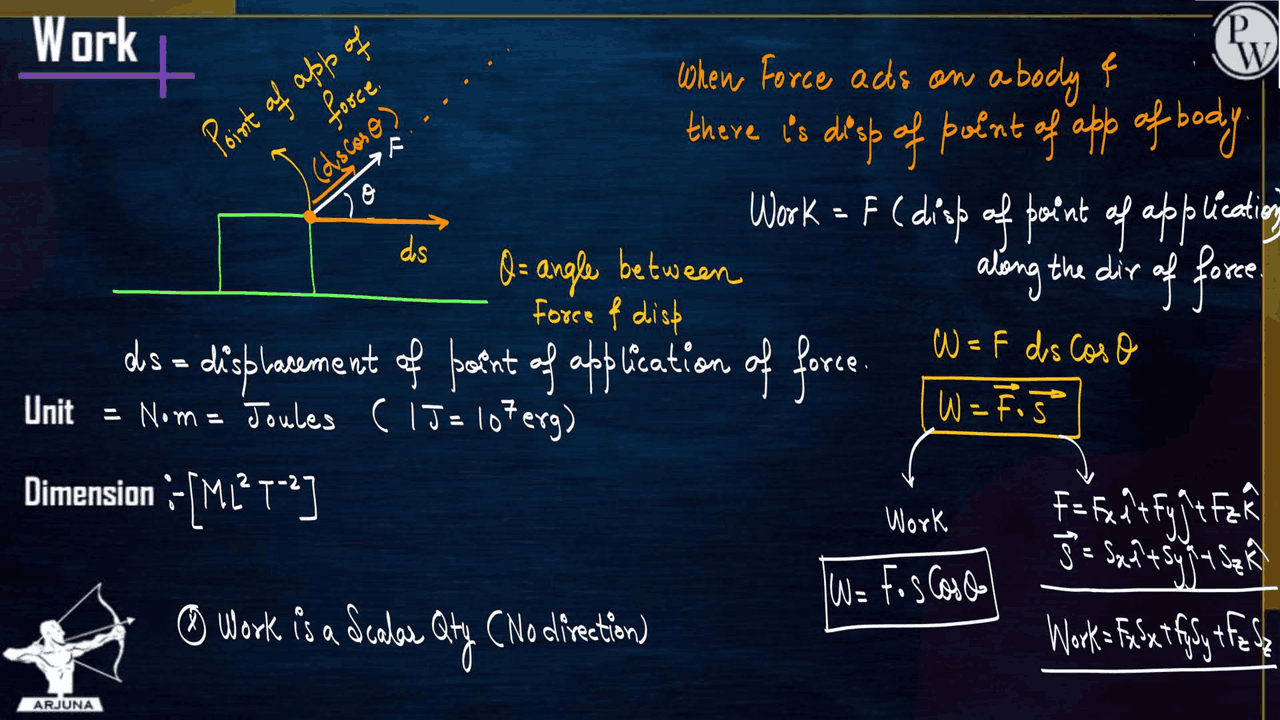 Work
PW
Point of app of
force.
(ds cosθ)
F
θ
ds
When Force acts on a body &
there is disp of point of app of body.
Work = F (disp of point of application)
along the dir of force.
θ = angle between
Force & disp
ds = displacement of point of application of force.
W = F ds Cos θ
W = F⃗ · s⃗
Unit = N·m = Joules ( 1J = 10⁷ erg)
Dimension :- [ML² T⁻²]
Work
W = F·s Cosθ
F = Fx î + Fy ĵ + Fz k̂
s⃗ = Sx î + Sy ĵ + Sz k̂
Work = FxSx + FySy + Fz Sz
Work is a Scalar Qty (No direction)
ARJUNA